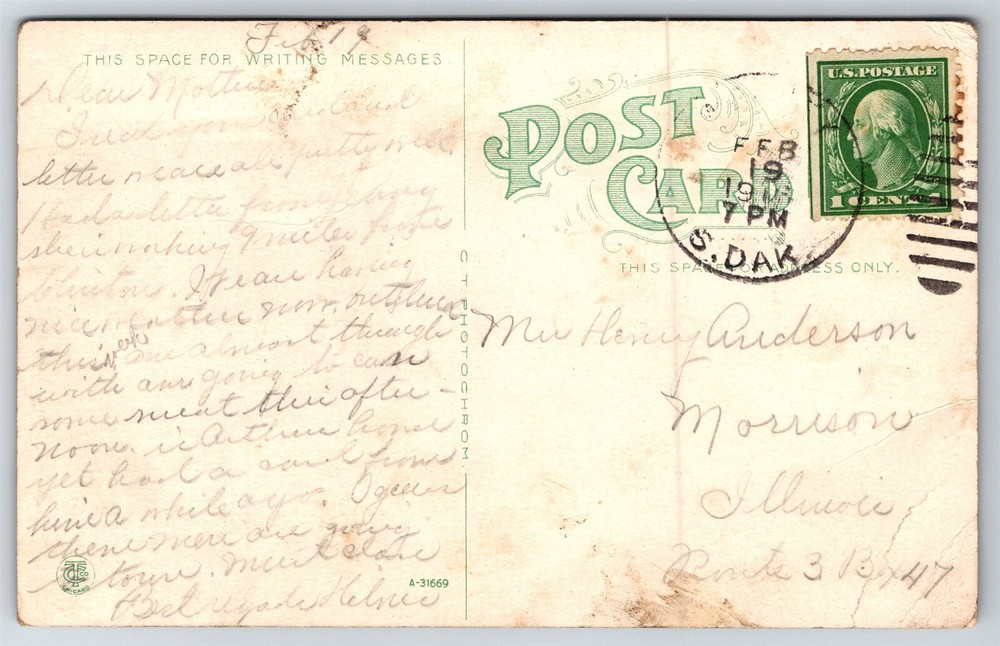 Feb 19
THIS SPACE FOR WRITING MESSAGES.
Dear Mother
I rec'd your card and
letter we are all pretty well
Had a letter from
she is working 9 miles from
. We are having
nice weather now.
this week are almost through
with are going to can
some meat this after-
noon. is Arthur home
yet had a card from
him a while ago. I guess
the men are going
to town. Must close
Best regards
CT CHICAGO
A-31669
C T PHOTOCHROM
POST CARD
FEB
19
191
7 PM
S. DAK.
U.S. POSTAGE
1 CENT 1
THIS SPACE FOR ADDRESS ONLY.
Henry Anderson
Morrison
Illinois
Route 3 Box 47